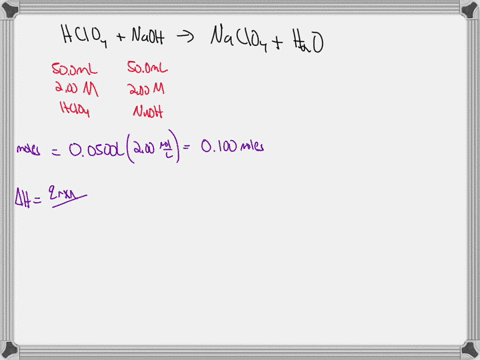 HClO₄ + NaOH → NaClO₄ + H₂O
50.0mL 50.0mL
2.00 M 2.00 M
HClO₄ NaOH
moles = 0.0500L (2.00 mol/L) = 0.100 moles
ΔH = qrxn